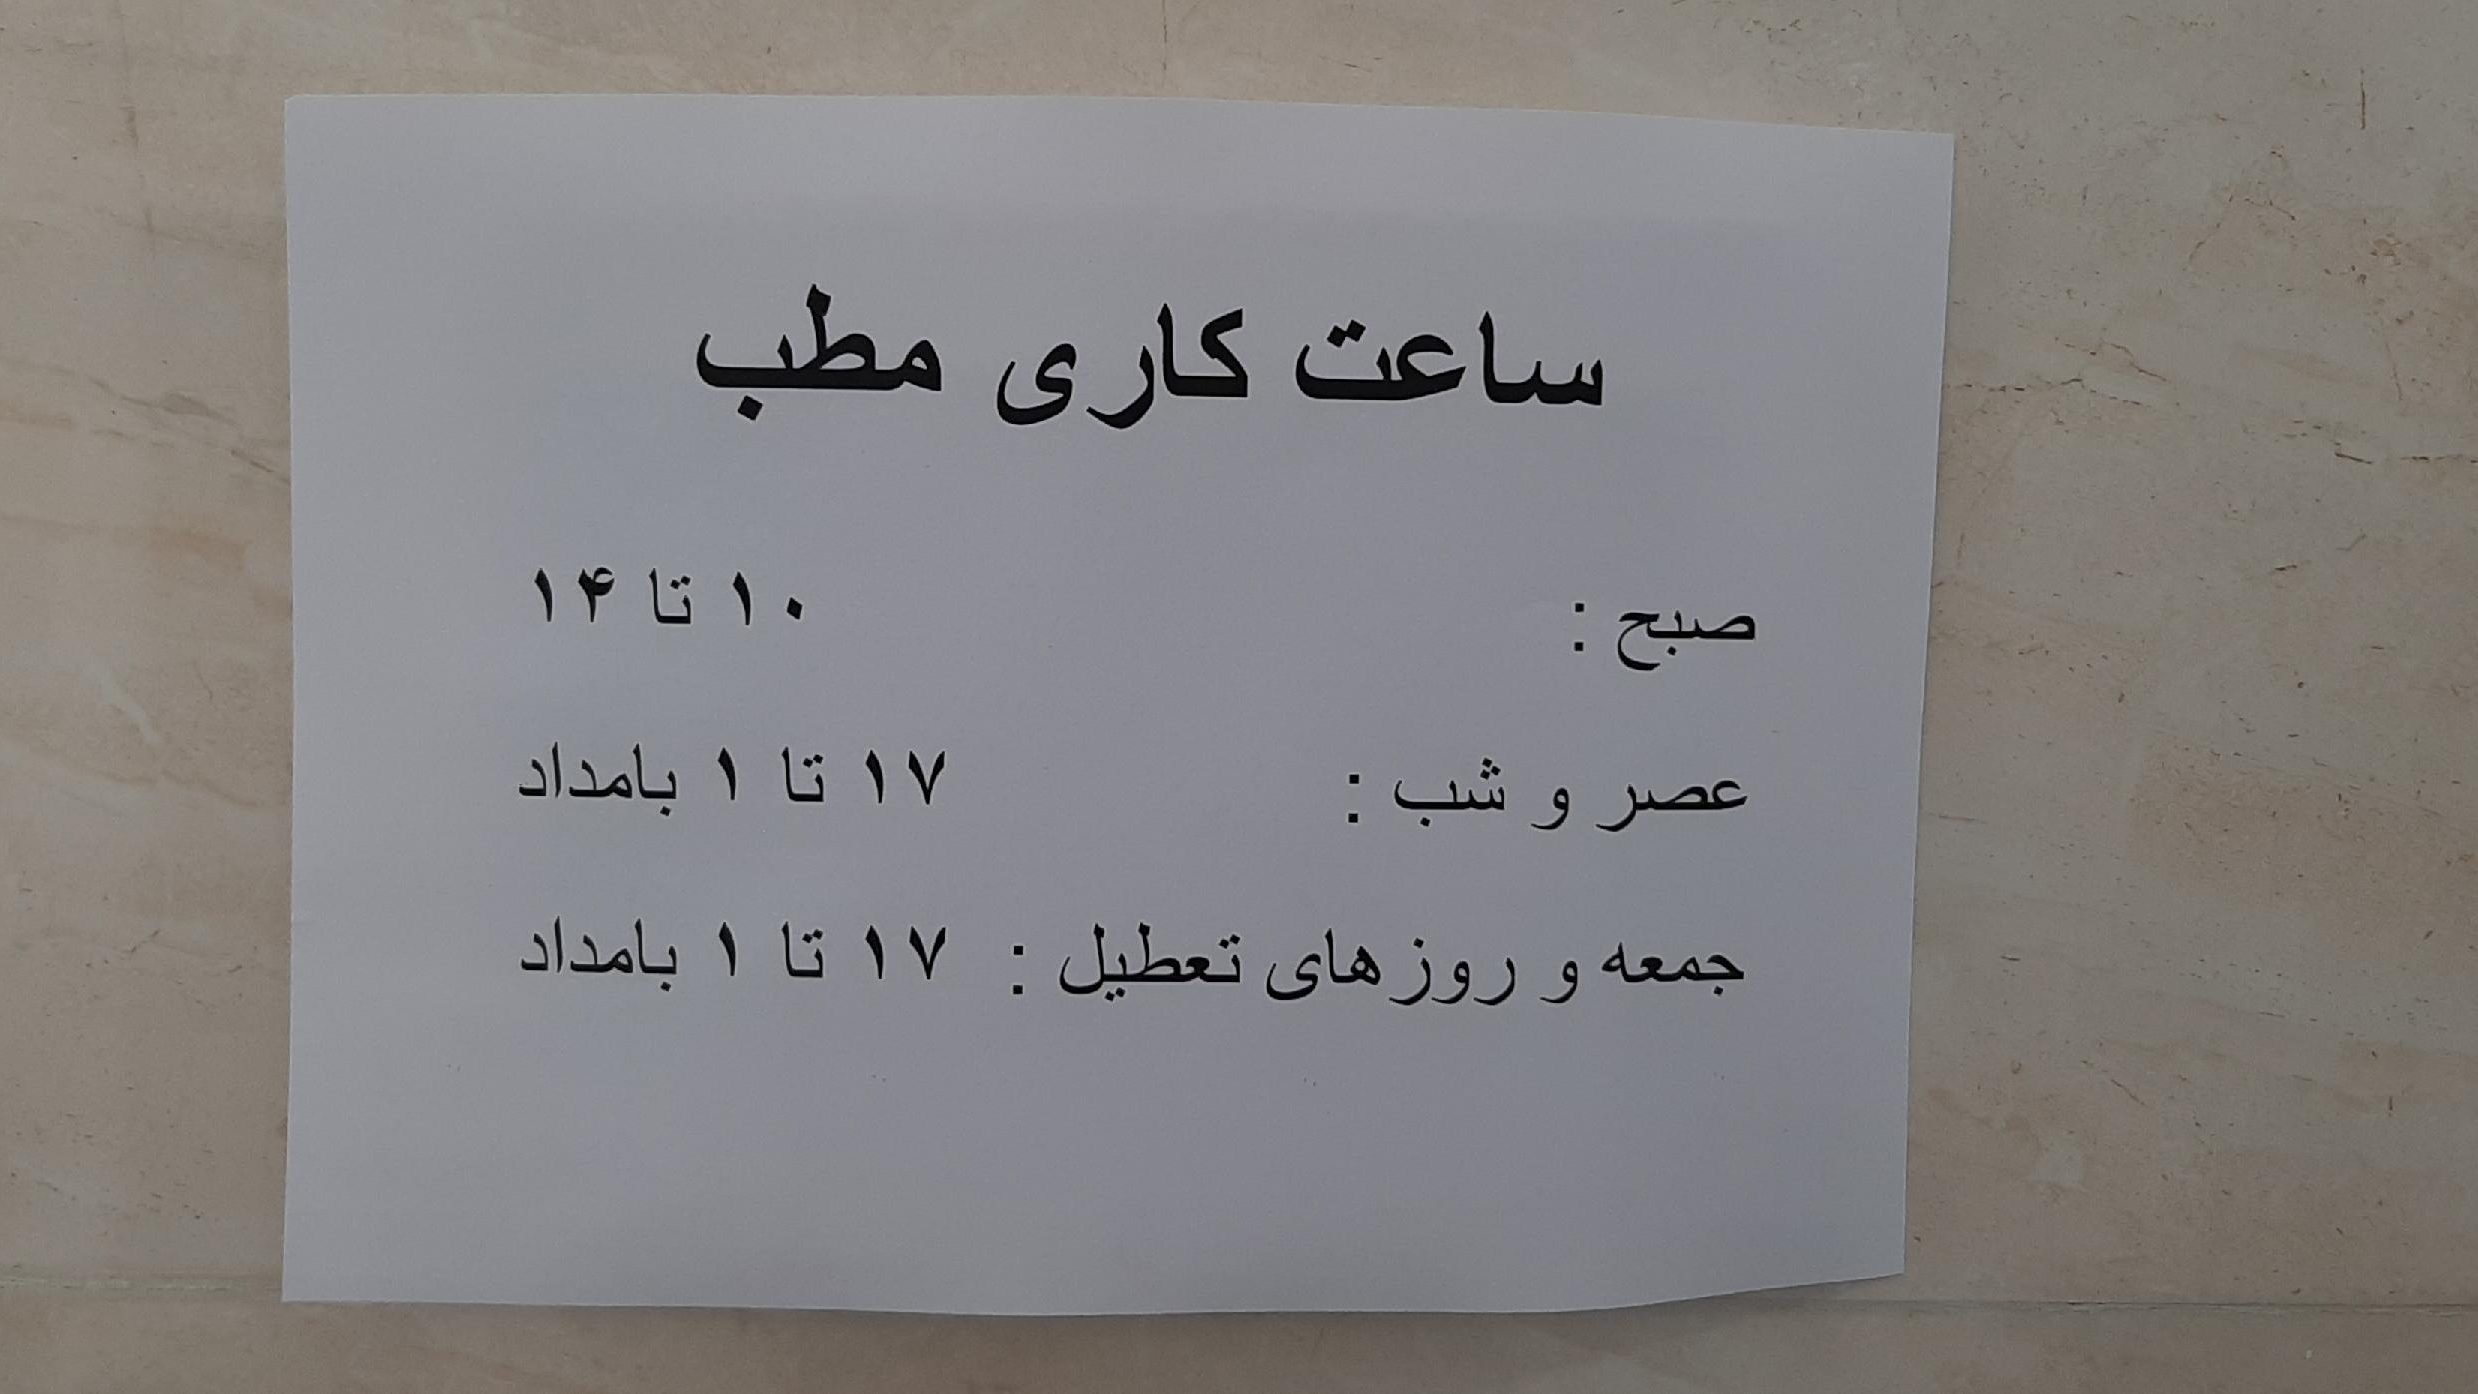 ساعت کاری مطب
صبح : ۱۰ تا ۱۴
عصر و شب : ۱۷ تا ۱ بامداد
جمعه و روزهای تعطیل : ۱۷ تا ۱ بامداد